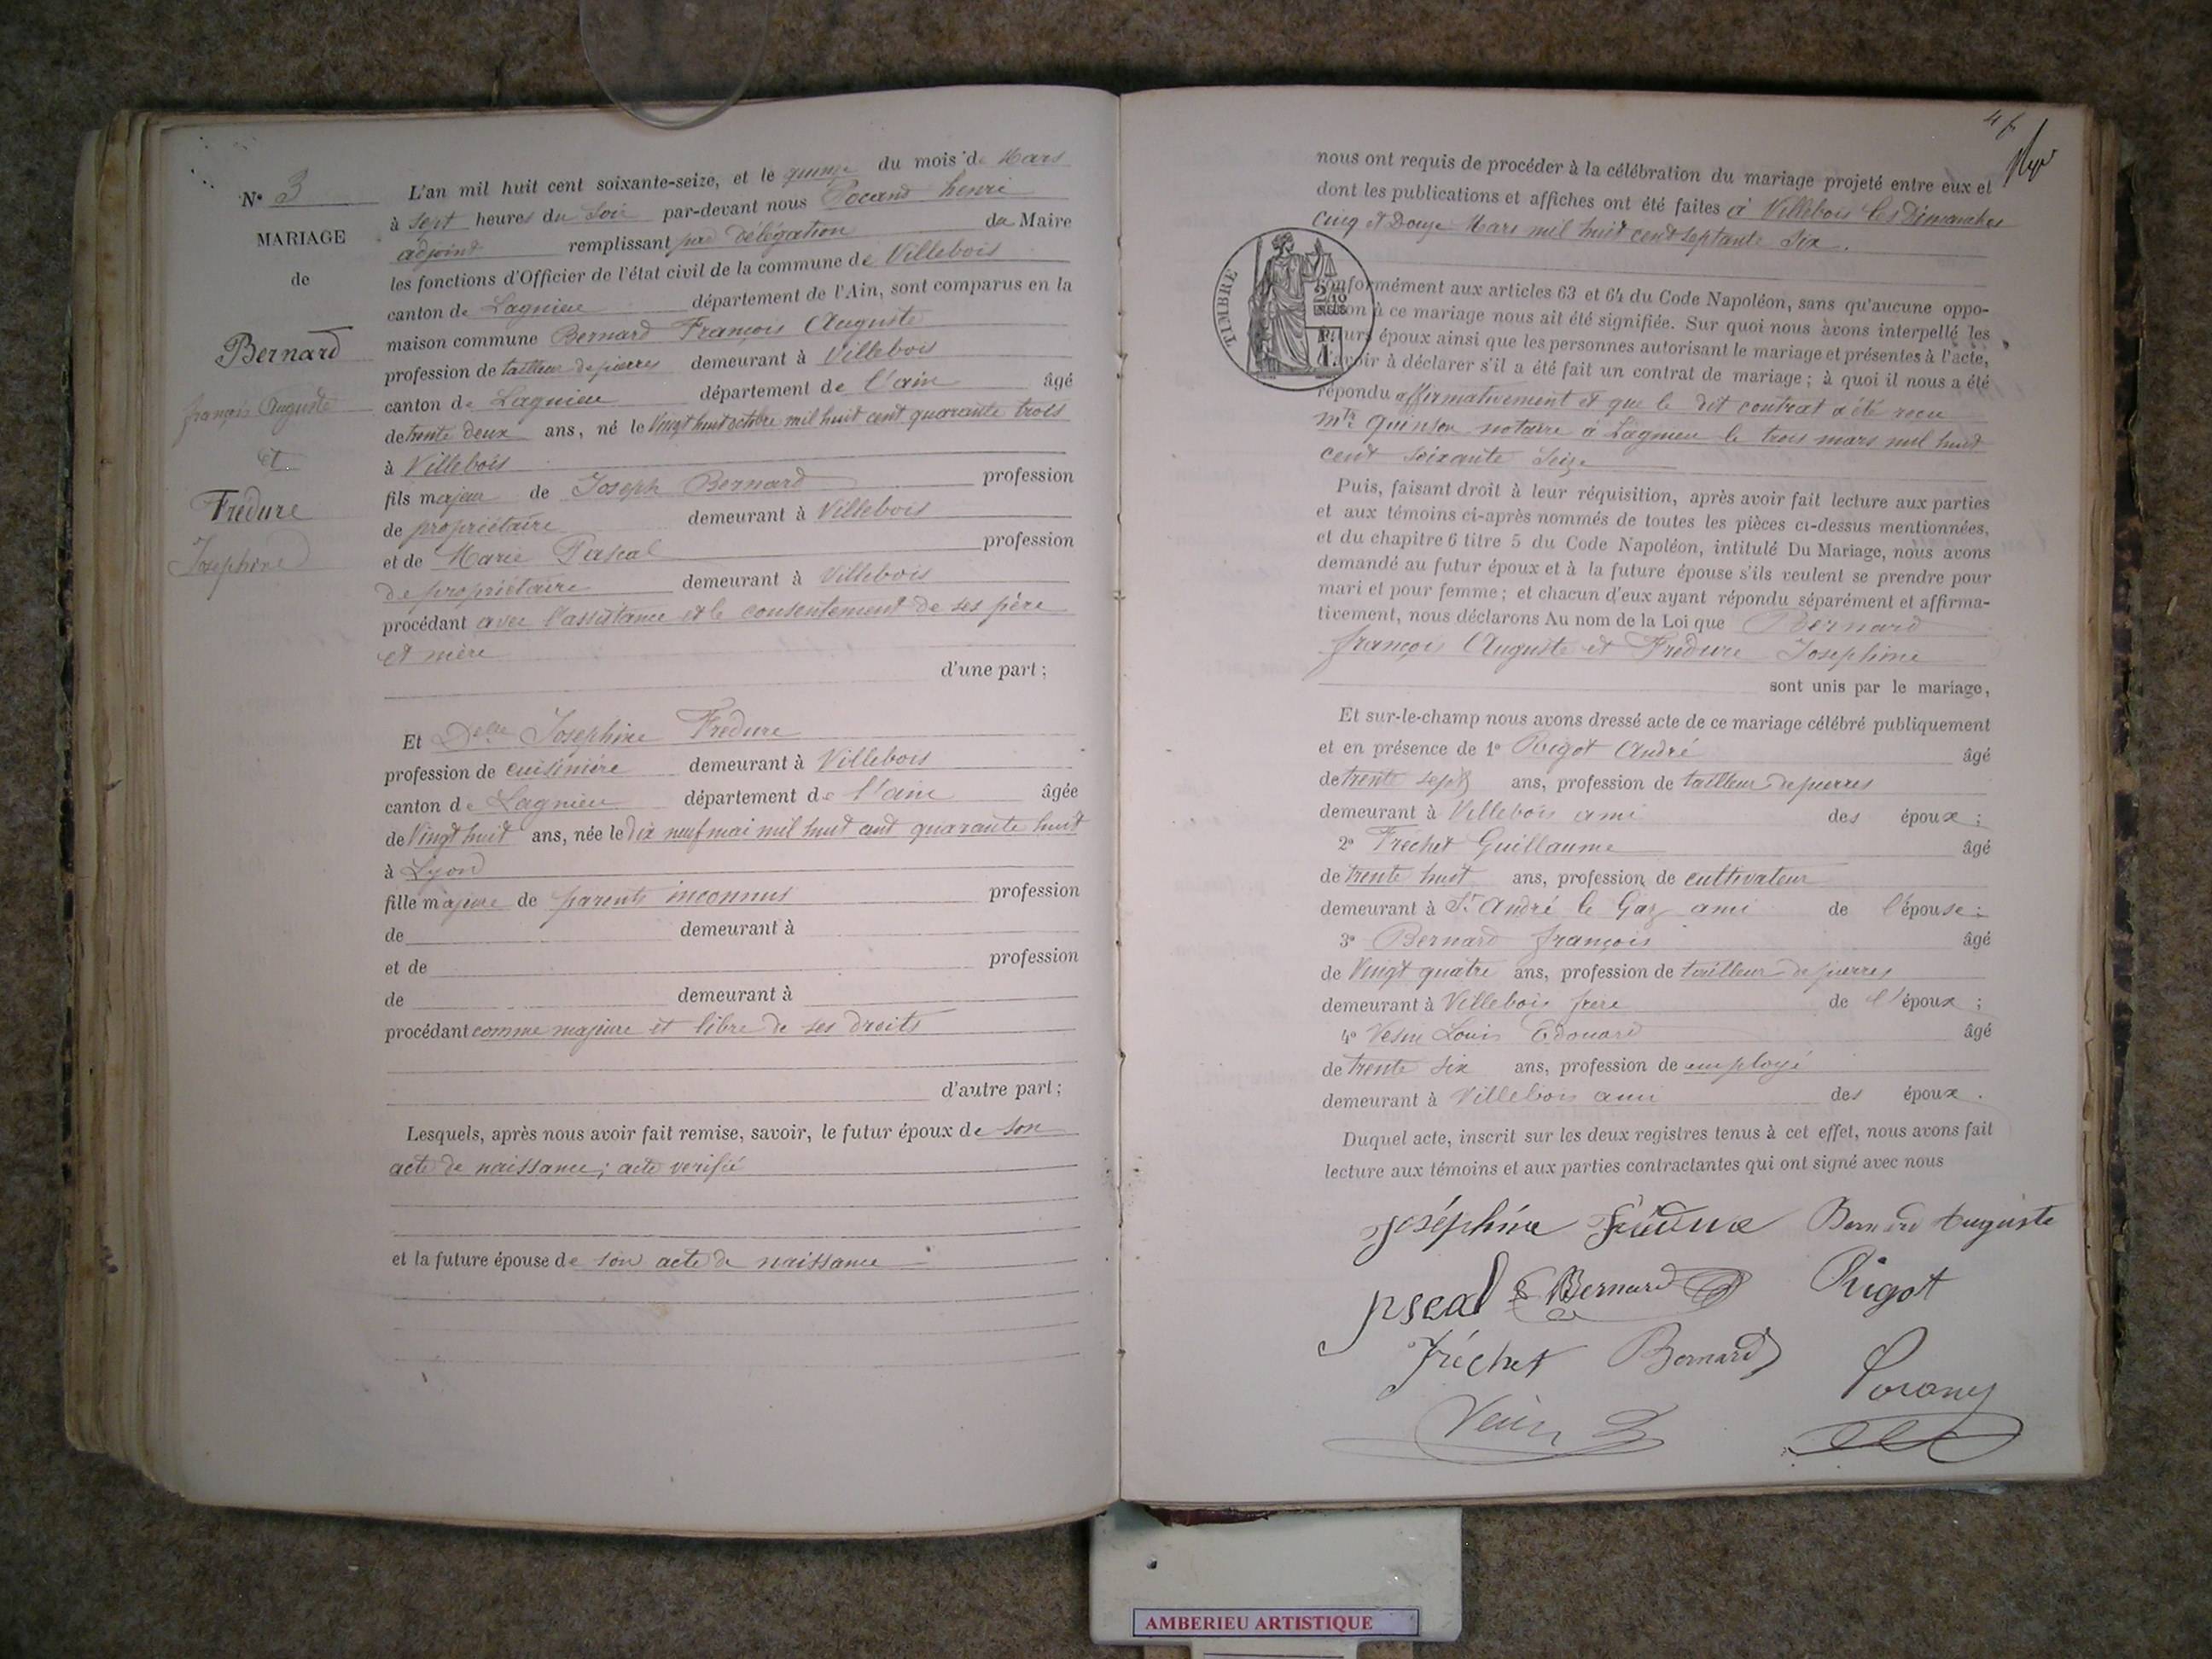 N° 3
MARIAGE
de
Bernard
françois Auguste
et
Fredure
Josephine
L'an mil huit cent soixante-seize, et le quinze du mois de Mars
à sept heures du Soir par-devant nous Pocand henri
adjoint remplissant par délégation du Maire
les fonctions d'Officier de l'état civil de la commune de Villebois
canton de Lagnieu département de l'Ain, sont comparus en la
maison commune Bernard François Auguste
profession de tailleur de pierres demeurant à Villebois
canton de Lagnieu département de l'ain âgé
de trente deux ans, né le Vingt huit octobre mil huit cent quarante trois
à Villebois
fils majeur de Joseph Bernard profession
de propriétaire demeurant à Villebois
et de Marie Pascal profession
de propriétaire demeurant à Villebois
procédant avec l'assistance et le consentement de ses père
et mère
d'une part ;
Et Delle Josephine Fredure
profession de cuisinière demeurant à Villebois
canton de Lagnieu département de l'ain âgée
de Vingt huit ans, née le Dix neuf mai mil huit cent quarante huit
à Lyon
fille majeure de parents inconnus profession
de demeurant à
et de profession
de demeurant à
procédant comme majeure et libre de ses droits
d'autre part ;
Lesquels, après nous avoir fait remise, savoir, le futur époux de son
acte de naissance ; acte verifié
et la future épouse de son acte de naissance
nous ont requis de procéder à la célébration du mariage projeté entre eux et
dont les publications et affiches ont été faites à Villebois les Dimanches
Cinq et Douze Mars mil huit cent septante Six.
TIMBRE
Conformément aux articles 63 et 64 du Code Napoléon, sans qu'aucune oppo-
sition à ce mariage nous ait été signifiée. Sur quoi nous avons interpellé les
futurs époux ainsi que les personnes autorisant le mariage et présentes à l'acte,
d'avoir à déclarer s'il a été fait un contrat de mariage ; à quoi il nous a été
répondu affirmativement et que le dit contrat a été reçu
Mtr Quinson notaire à Lagnieu le trois mars mil huit
cent soixante Seize
Puis, faisant droit à leur réquisition, après avoir fait lecture aux parties
et aux témoins ci-après nommés de toutes les pièces ci-dessus mentionnées,
et du chapitre 6 titre 5 du Code Napoléon, intitulé Du Mariage, nous avons
demandé au futur époux et à la future épouse s'ils veulent se prendre pour
mari et pour femme ; et chacun d'eux ayant répondu séparément et affirma-
tivement, nous déclarons Au nom de la Loi que Bernard
françois Auguste et Fredure Josephine
sont unis par le mariage,
Et sur-le-champ nous avons dressé acte de ce mariage célébré publiquement
et en présence de 1° Rigot André âgé
de trente sept ans, profession de tailleur de pierres
demeurant à Villebois ami des époux ;
2° Fréchet Guillaume âgé
de trente huit ans, profession de cultivateur
demeurant à St André le Gaz ami de l'épouse ;
3° Bernard françois âgé
de Vingt quatre ans, profession de tailleur de pierres
demeurant à Villebois frere de l'époux ;
4° Louis Edouard âgé
de trente six ans, profession de employé
demeurant à Villebois ami des époux.
Duquel acte, inscrit sur les deux registres tenus à cet effet, nous avons fait
lecture aux témoins et aux parties contractantes qui ont signé avec nous
Joséphine Frédure Bernard Auguste
pscal Bernard Rigot
Fréchet Bernard
AMBERIEU ARTISTIQUE